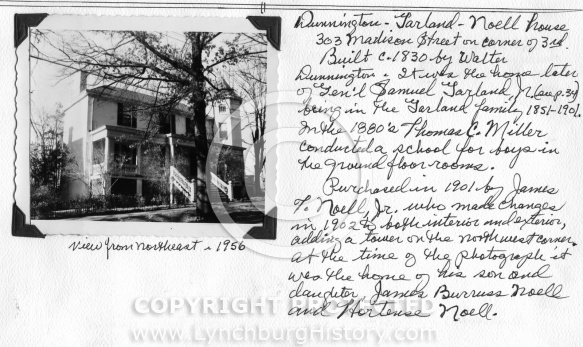 Dunnington - Garland - Noell House
303 Madison Street on corner of 3rd.
Built c-1830 by Walter
Dunnington - It was the home later
of Gen'l Samuel Garland, Jr. (see p. 34)
being in the Garland family, 1851-1901.
In the 1880's Thomas C. Miller
conducted a school for boys in
the ground floor rooms.
Purchased in 1901 by James
T. Noell Jr. who made changes
in 1902 to both interior and exterior,
adding a tower on the northwest corner,
at the time of the photograph it
was the home of his son and
daughter, James Burruss Noell
and Hortense Noell.
View from northeast - 1956
COPYRIGHT PROTECTED
www.LynchburgHistory.com